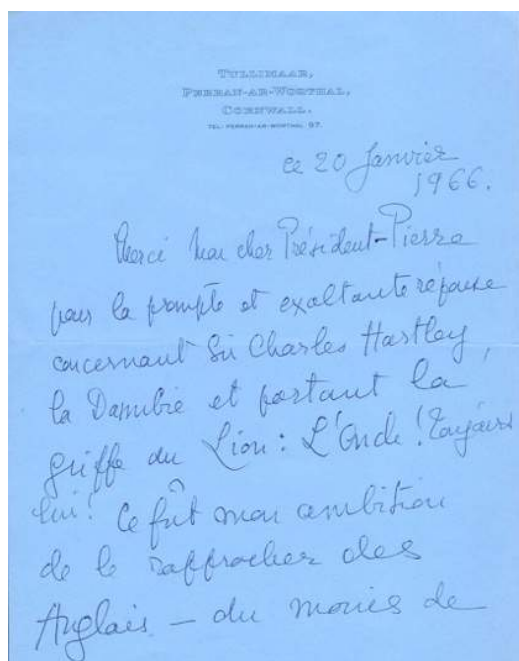 TULLIMAAR,
PERRAN-AR-WORTHAL,
CORNWALL.
TEL: PERRAN-AR-WORTHAL 97.
ce 20 Janvier
1966.
Merci Mon cher Président-Pierre
pour la prompte et exaltante réponse
concernant Sir Charles Hartley,
la Danubie et portant la
griffe du Lion: L'Oncle! Toujours
lui! Ce fût mon ambition
de le rapprocher des
Anglais — du moins de